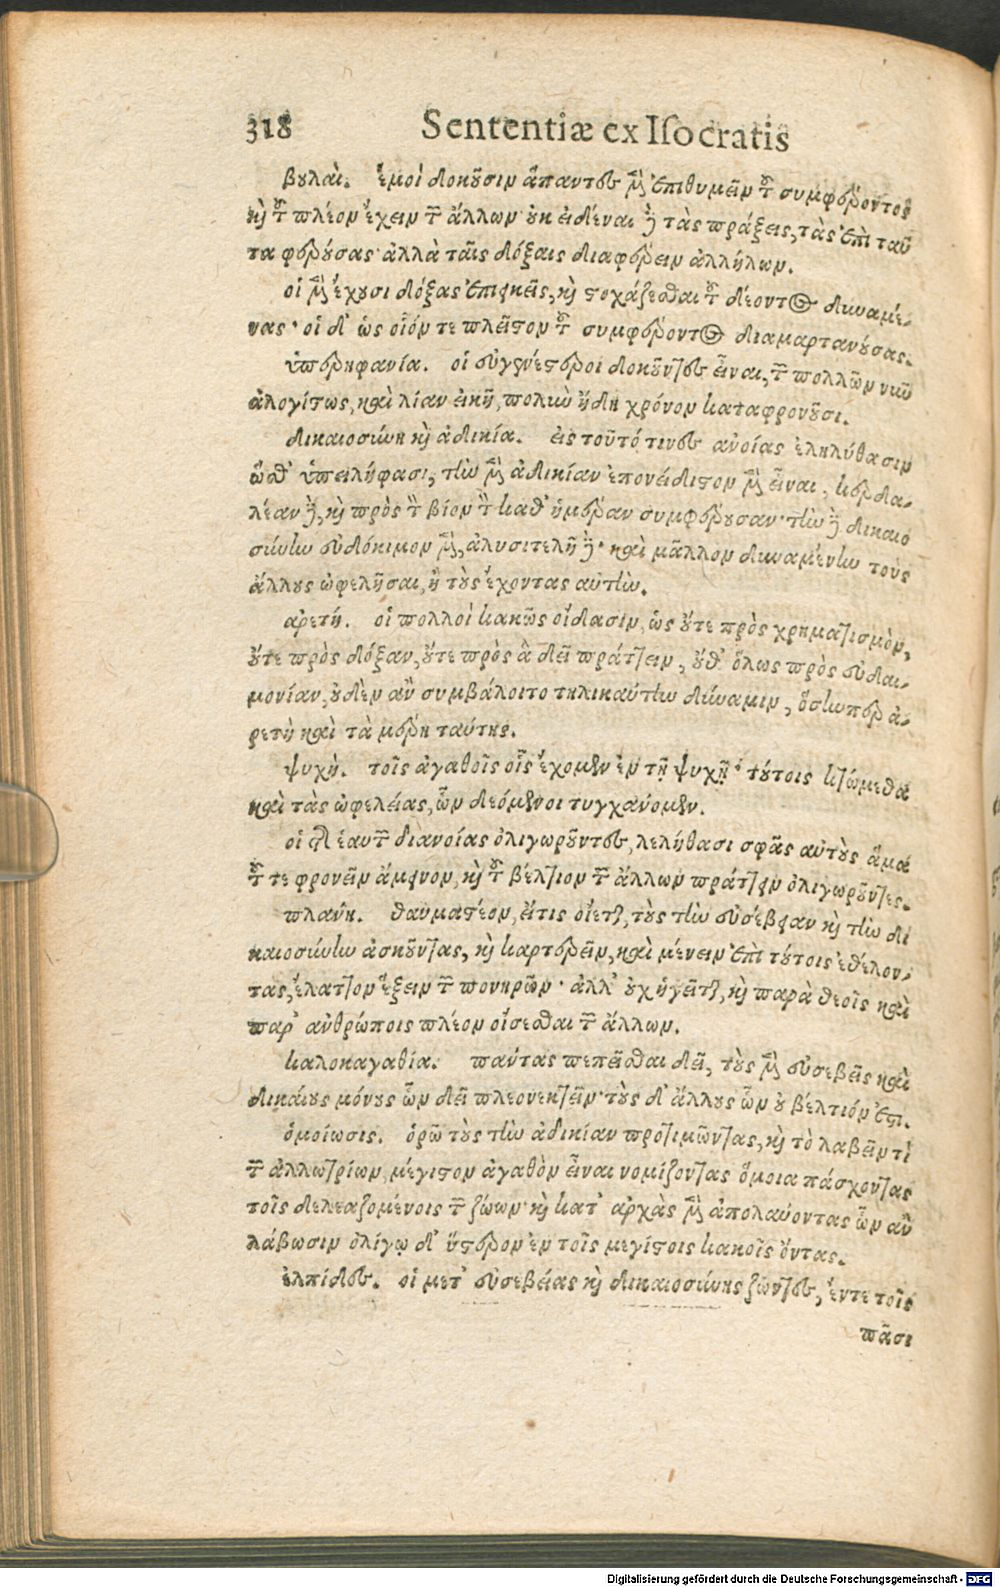 318 Sententiæ ex Iſocratis
βουλαὶ. ἐμοὶ δοκοῦσιν ἅπαντες μὲν ἐπιθυμεῖν τοῦ συμφέροντος
καὶ τοῦ πλέον ἔχειν τῶν ἄλλων· οὐκ εἰδέναι δὲ τὰς πράξεις, τὰς ἐπὶ ταῦ
τα φερούσας· ἀλλὰ ταῖς δόξαις διαφέρειν ἀλλήλων.
οἱ μὲν ἔχουσι δόξας ἐπιεικεῖς, καὶ στοχάζεσθαι τοῦ δέοντος δυναμέ-
νας· οἱ δ' ὡς οἷόν τε πλεῖστον τοῦ συμφέροντος διαμαρτανούσας.
ὑπερηφανία. οἱ εὐγενέστεροι δοκοῦντες εἶναι, τῶν πολλῶν νιῶ
ἀλογίστως, καὶ λίαν εἰκῆ, πολιὼ ἤδη χρόνον καταφρονοῦσι.
δικαιοσύνη καὶ ἀδικία. εἰς τοῦτό τινες ἀνοίας ἐληλύθασιν
ὥσθ' ὑπειλήφασι, τὴν μὲν ἀδικίαν ἐπονείδιστον μὲν εἶναι, κερδα-
λέαν δὲ, καὶ πρὸς τὸν βίον τὸν καθ' ἡμέραν συμφέρουσαν· τὴν δὲ δικαιο
σύνην εὐδόκιμον μὲν, ἀλυσιτελῆ δὲ· καὶ μᾶλλον δυναμένην τοὺς
ἄλλους ὠφελῆσαι, ἢ τοὺς ἔχοντας αὐτὴν.
ἀρετή. οἱ πολλοὶ κακῶς οἴδασιν, ὡς οὔτε πρὸς χρηματισμὸν,
οὔτε πρὸς δόξαν, οὔτε πρὸς ἃ δεῖ πράττειν, οὔθ' ὅλως πρὸς εὐδαι-
μονίαν, οὐδὲν ἂν συμβάλοιτο τηλικαύτην δύναμιν, ὅσηνπερ ἀ-
ρετὴ καὶ τὰ μέρη ταύτης.
ψυχή. τοῖς ἀγαθοῖς οἷς ἔχομεν ἐν τῇ ψυχῇ· τούτοις κτώμεθα
καὶ τὰς ὠφελείας, ὧν δεόμενοι τυγχάνομεν.
οἱ τῆς ἑαυτῶν διανοίας ὀλιγωροῦντες, λελήθασι σφᾶς αὐτοὺς ἅμα
τοῦ τε φρονεῖν ἄμεινον, καὶ τοῦ βέλτιον τῶν ἄλλων πράττειν ὀλιγωροῦντες.
πλάνη. θαυμαστέον, εἴ τις οἴεται, τοὺς τὴν εὐσέβειαν καὶ τὴν δι
καιοσύνην ἀσκοῦντας, καὶ καρτερεῖν, καὶ μένειν ἐπὶ τούτοις ἐθέλον-
τας, ἔλαττον ἕξειν τῶν πονηρῶν· ἀλλ' οὐχ ἡγεῖται, καὶ παρὰ θεοῖς καὶ
παρ' ἀνθρώποις πλέον οἴσεσθαι τῶν ἄλλων.
καλοκαγαθία. πάντας πεπεῖσθαι δεῖ, τοὺς μὲν εὐσεβεῖς καὶ
δικαίους μόνους ὧν δεῖ πλεονεκτεῖν· τοὺς δ' ἄλλους ὧν οὐ βέλτιόν ἐστι.
ὁμοίωσις. ὁρῶ τοὺς τὴν ἀδικίαν προτιμῶντας, καὶ τὸ λαβεῖν τὶ
τῶν ἀλλοτρίων, μέγιστον ἀγαθὸν εἶναι νομίζοντας ὅμοια πάσχοντας
τοῖς δελεαζομένοις τῶν ζώων· καὶ κατ' ἀρχὰς μὲν ἀπολαύοντας ὧν ἂν
λάβωσιν ὀλίγῳ δ' ὕστερον ἐν τοῖς μεγίστοις κακοῖς ὄντας.
ἐλπίδες. οἱ μετ' εὐσεβείας καὶ δικαιοσύνης ζῶντες, ἔν τε τοῖς
πᾶσι
Digitalisierung gefördert durch die Deutsche Forschungsgemeinschaft - DFG